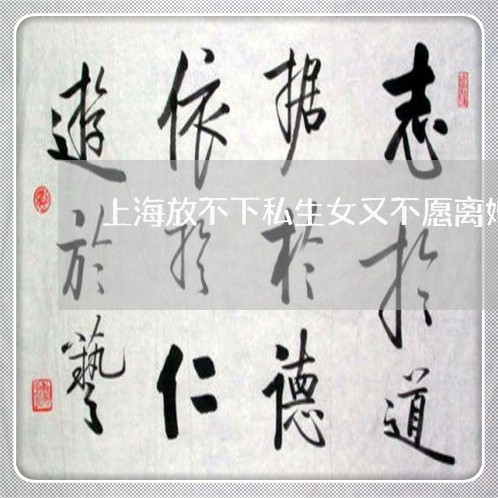 志於道
据於德
依於仁
遊於藝
上海放不下私生女又不愿离